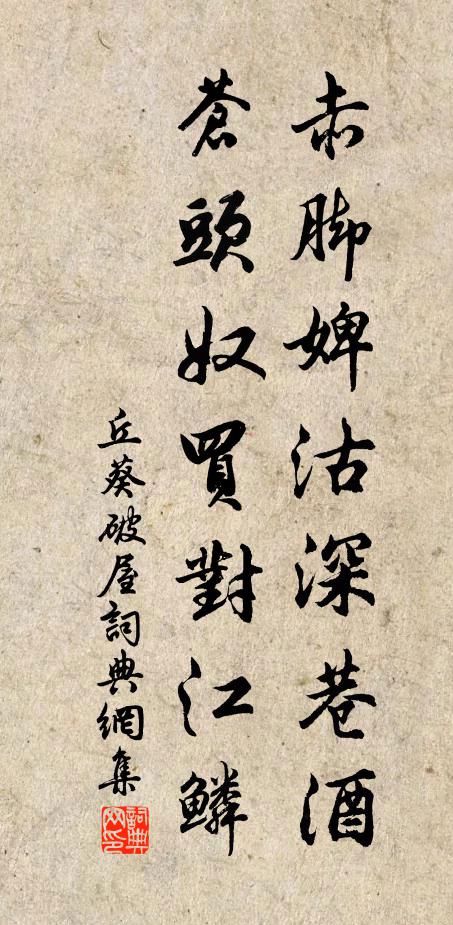 赤脚婢沽深巷酒
蒼頭奴買對江鱗
丘葵破屋詞典網集
詞典网印